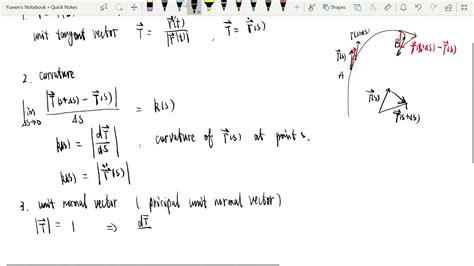 Yuwen's Notebook » Quick Notes
Shapes
unit tangent vector T⃗ = r⃗'(t) / |r⃗'(t)| , T⃗ = r⃗'(s)
2. curvature
lim Δs→0 |T⃗(s+Δs) - T⃗(s)| / Δs = k(s)
k(s) = |dT⃗/ds| curvature of r⃗(s) at point s.
k(s) = |r⃗''(s)|
3. unit normal vector ( pricipal unit normal vector)
|T⃗| = 1 ⇒ dT⃗
A
B
T⃗(s)
T⃗(s+Δs) - T⃗(s)
T⃗(s)
T⃗(s+Δs)